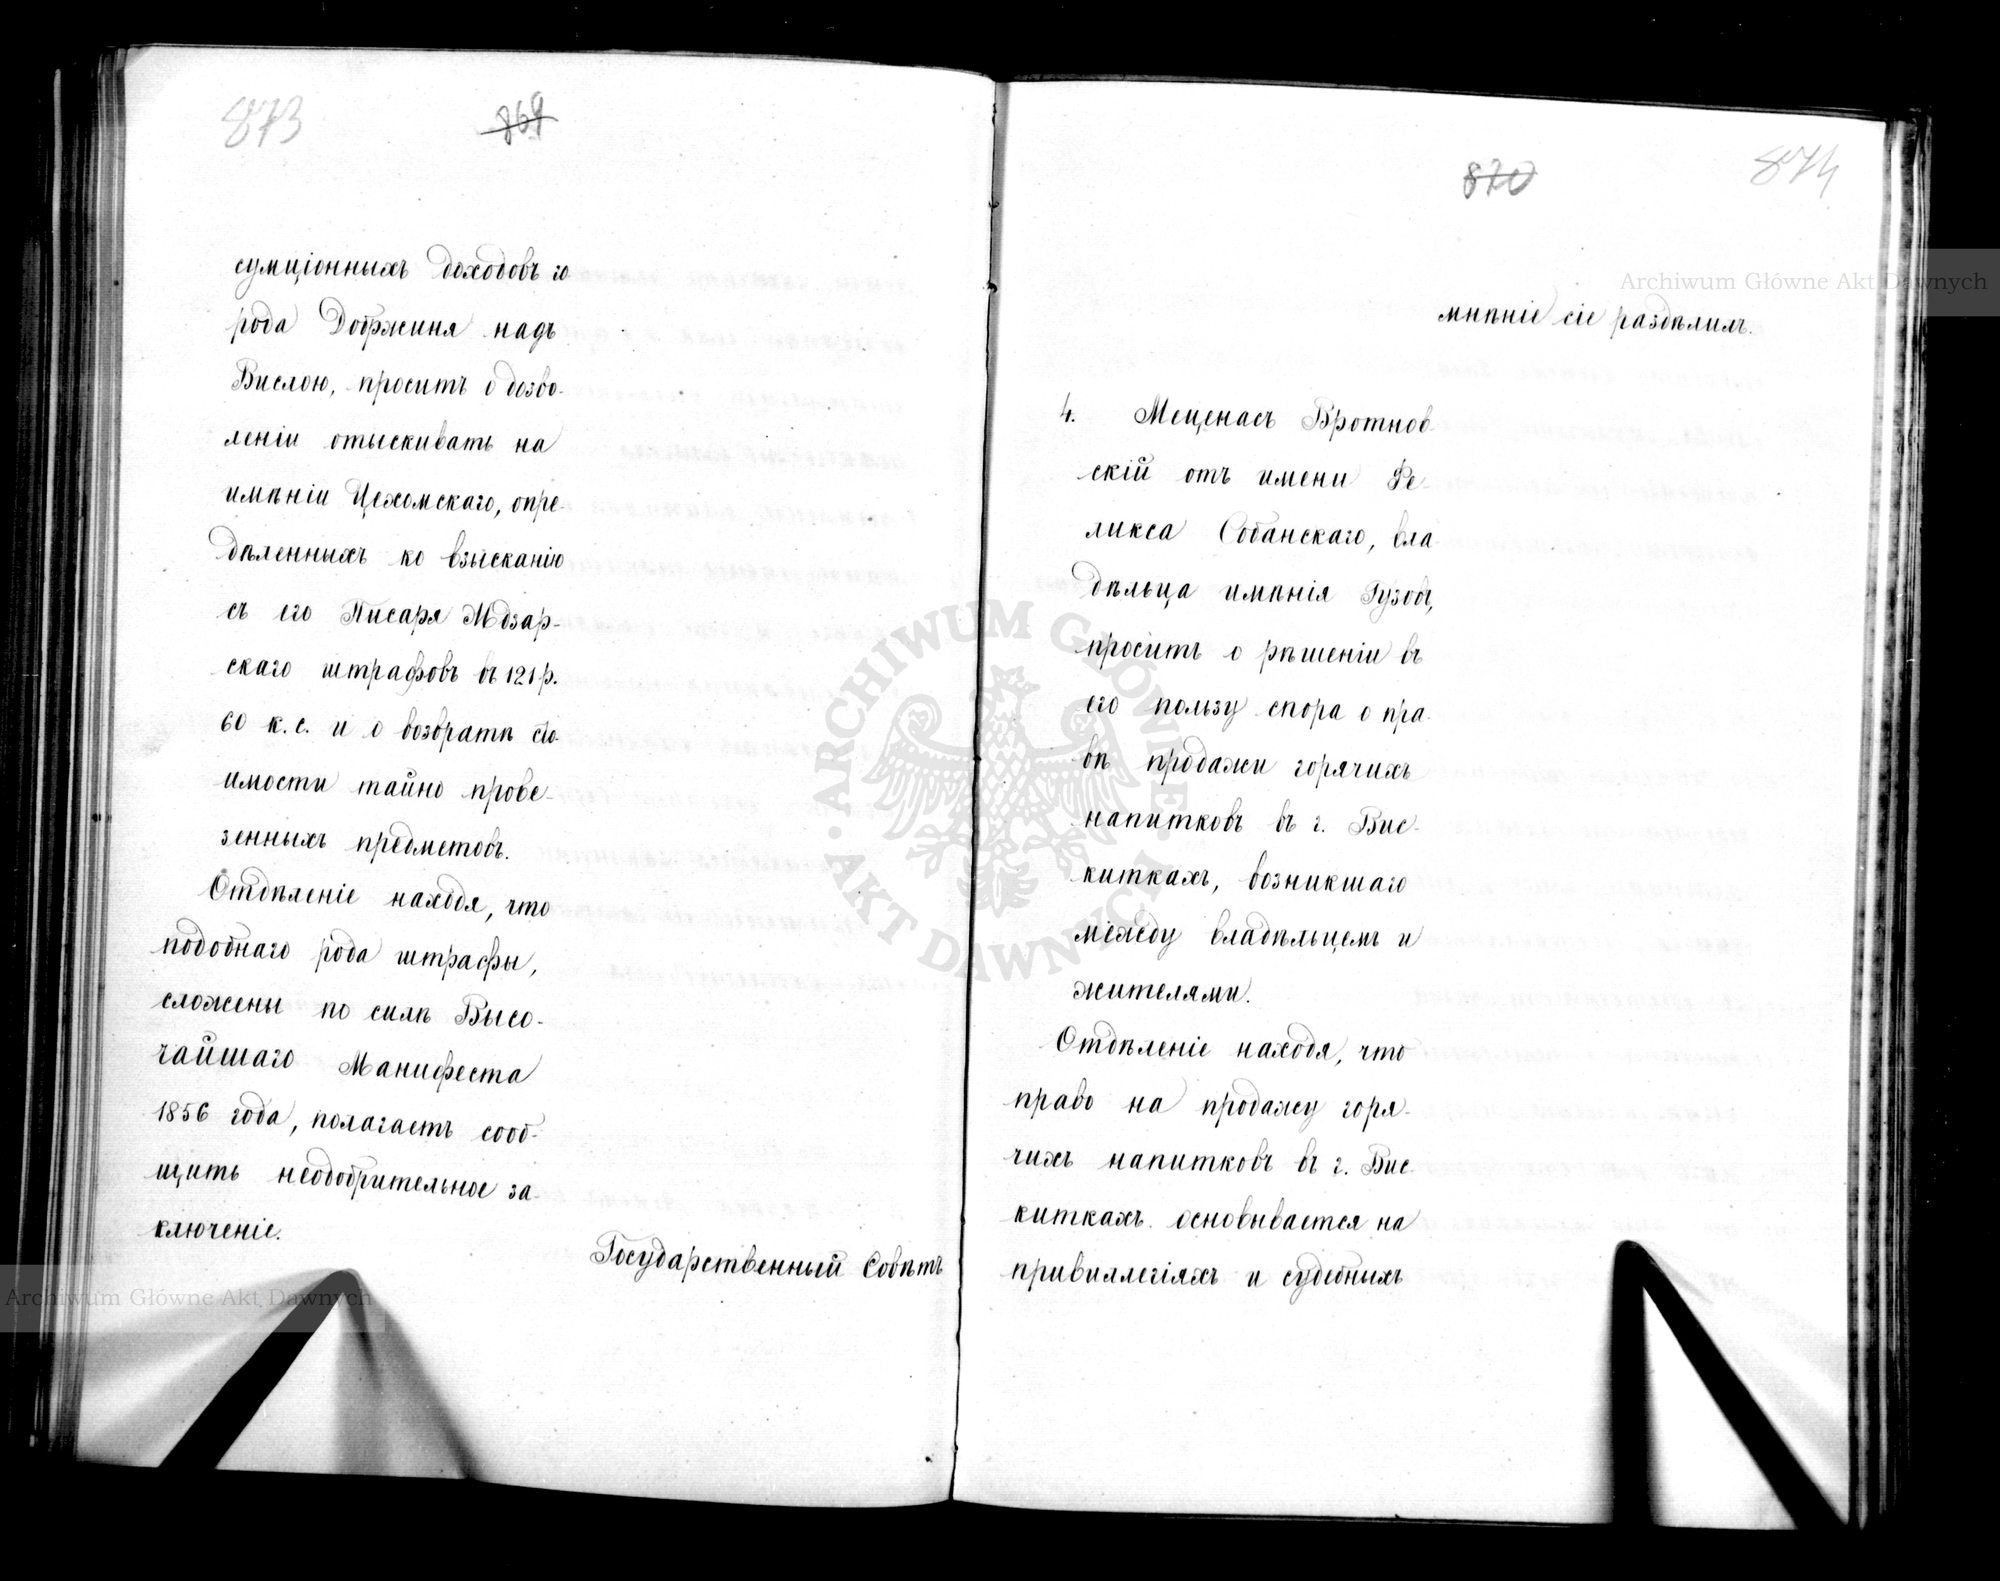 873
869
сумціонныхъ доходовъ го
рода Добржиня надъ
Вислою, проситъ о дозво-
леніи отыскивать на
имѣніи Цехомскаго, опре-
дѣленныхъ ко взысканію
съ его Писаря Мозар-
скаго штрафовъ въ 121 р.
60 к. с. и о возвратѣ сто-
имости тайно прове-
зенныхъ предметовъ.
Отдѣленіе находя, что
подобнаго рода штрафы,
сложены по силѣ Высо-
чайшаго Манифеста
1856 года, полагаетъ сооб-
щить неодобрительное за
ключеніе.
Государственный Совѣтъ
870
874
мнѣніе сіе раздѣлилъ.
4. Меценасъ Вротнов-
скій отъ имени Фе-
ликса Собанскаго, вла
дѣльца имѣнія Гузовъ,
проситъ о рѣшеніи въ
его пользу спора о пра-
вѣ продажи горячихъ
напитковъ въ г. Вис-
киткахъ, возникшаго
между владѣльцемъ и
жителями.
Отдѣленіе находя, что
право на продажу горя-
чихъ напитковъ въ г. Вис
киткахъ основывается на
привиллегіяхъ и судебныхъ
Archiwum Główne Akt Dawnych
Archiwum Główne Akt Dawnych
ARCHIWUM GŁÓWNE · AKT DAWNYCH ·